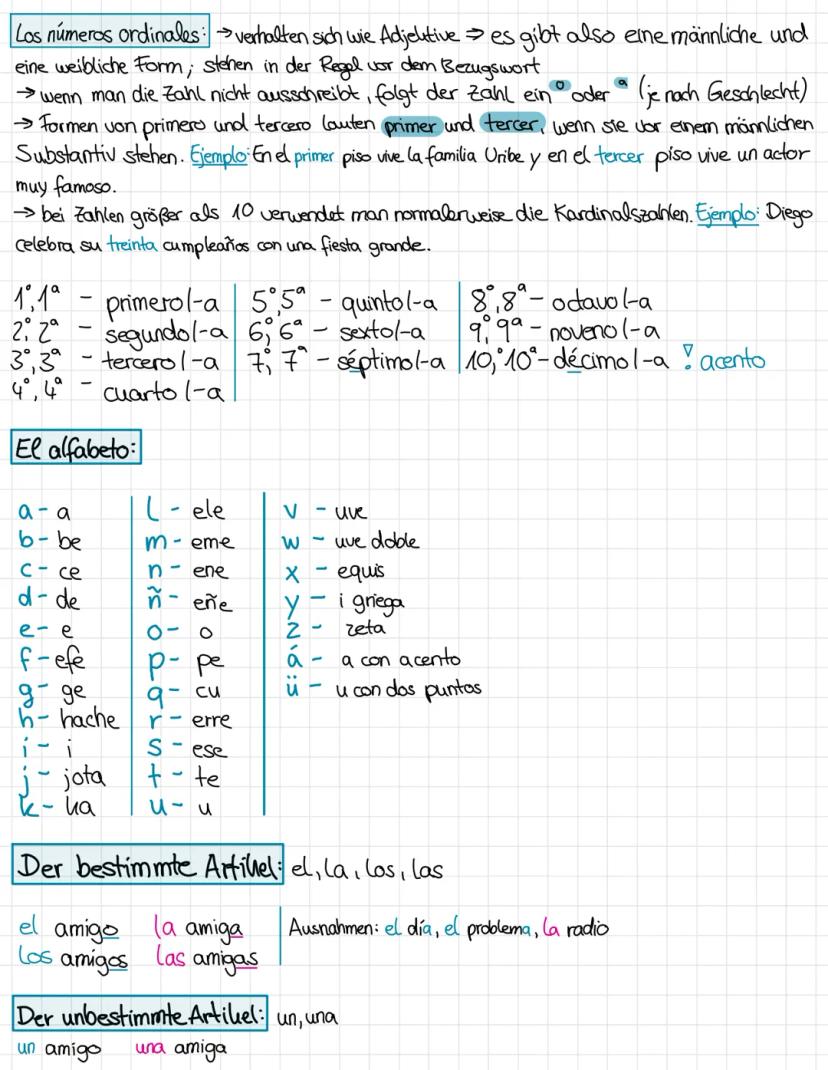 Los números ordinales: → verhalten sich wie Adjektive ⇒ es gibt also eine männliche und
eine weibliche Form; stehen in der Regel vor dem Bezugswort
→ wenn man die Zahl nicht ausschreibt, folgt der Zahl ein º oder ª (je nach Geschlecht)
→ Formen von primero und tercero lauten primer und tercer, wenn sie vor einem männlichen
Substantiv stehen. Ejemplo: En el primer piso vive la familia Uribe y en el tercer piso vive un actor
muy famoso.
→ bei Zahlen größer als 10 verwendet man normalerweise die Kardinalszahlen. Ejemplo: Diego
celebra su treinta cumpleaños con una fiesta grande.
1º, 1ª - primero/-a
2º, 2ª - segundo/-a
3º, 3ª - tercero/-a
4º, 4ª - cuarto/-a
5º, 5ª - quinto/-a
6º, 6ª - sexto/-a
7º, 7ª - séptimo/-a
8º, 8ª - octavo/-a
9º, 9ª - noveno/-a
10º, 10ª - décimo/-a ! acento
El alfabeto:
a - a
b - be
c - ce
d - de
e - e
f - efe
g - ge
h - hache
i - i
j - jota
k - ka
l - ele
m - eme
n - ene
ñ - eñe
o - o
p - pe
q - cu
r - erre
s - ese
t - te
u - u
v - uve
w - uve doble
x - equis
y - i griega
z - zeta
á - a con acento
ü - u con dos puntos
Der bestimmte Artikel: el, la, los, las
el amigo la amiga
los amigos las amigas
Ausnahmen: el día, el problema, la radio
Der unbestimmte Artikel: un, una
un amigo una amiga